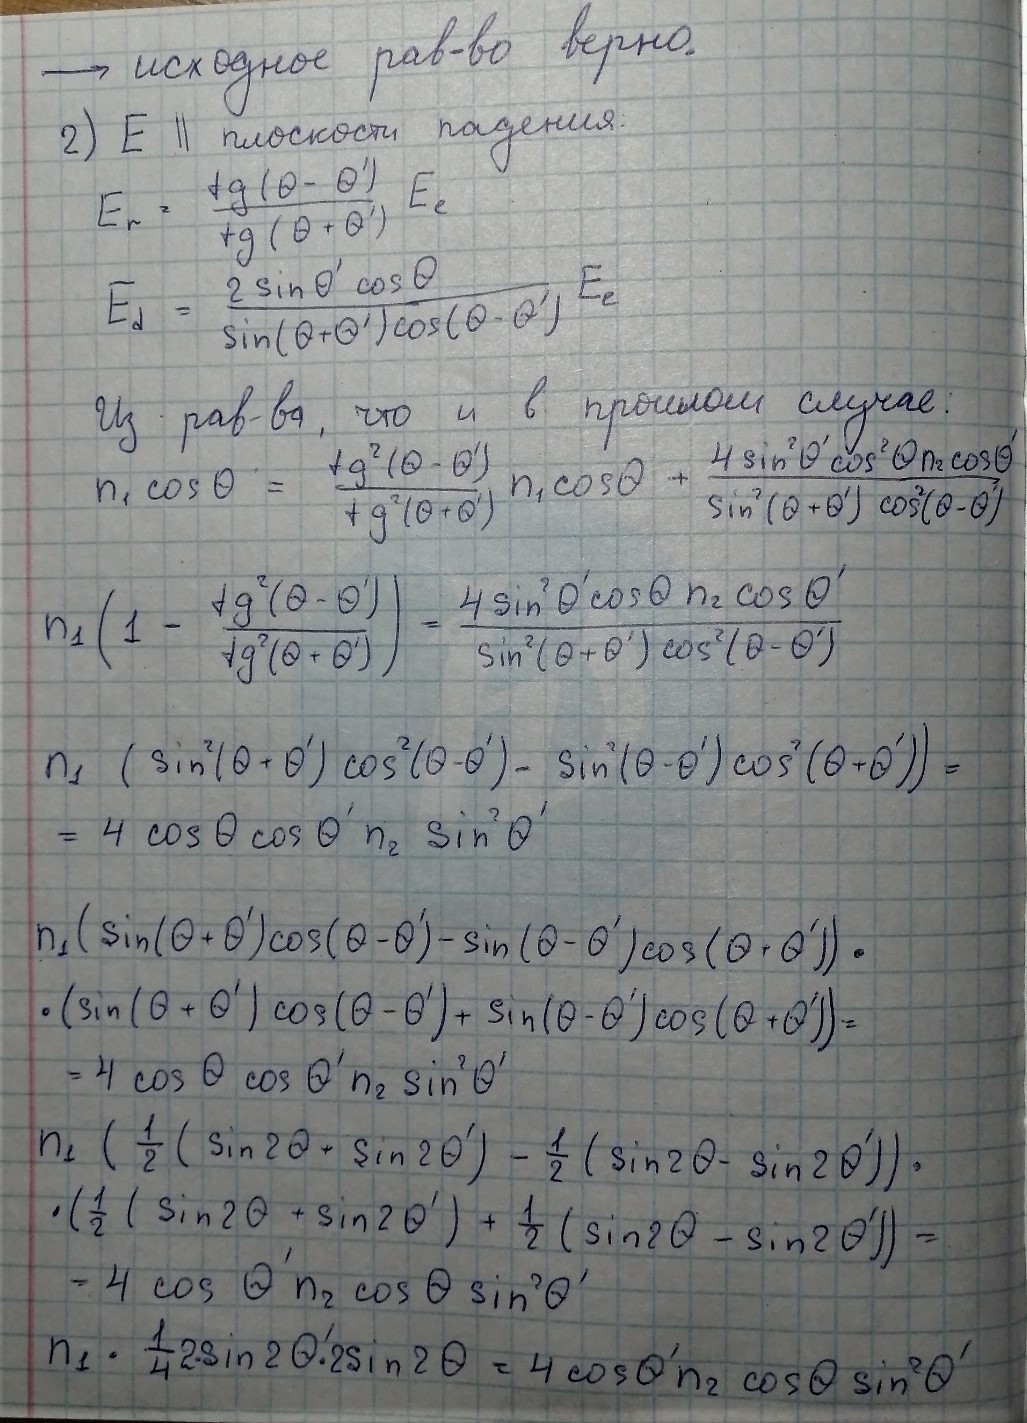 → исходное рав-во верно.
2) E || плоскости падения:
E_r = tg(θ - θ')/tg(θ + θ') E_e
E_d = 2 sin θ' cos θ/sin(θ+θ')cos(θ-θ') E_e
Из рав-ва, что и в прошлом случае:
n₁ cos θ = tg²(θ-θ')/tg²(θ+θ') n₁ cos θ + 4 sin²θ' cos²θ n₂ cos θ'/sin²(θ+θ') cos²(θ-θ')
n₁(1 - tg²(θ-θ')/tg²(θ+θ')) = 4 sin²θ' cos θ n₂ cos θ'/sin²(θ+θ') cos²(θ-θ')
n₁ (sin²(θ+θ') cos²(θ-θ') - sin²(θ-θ') cos²(θ+θ')) =
= 4 cos θ cos θ' n₂ sin²θ'
n₁(sin(θ+θ')cos(θ-θ') - sin(θ-θ')cos(θ+θ')) ·
· (sin(θ+θ') cos(θ-θ') + sin(θ-θ')cos(θ+θ')) =
= 4 cos θ cos θ' n₂ sin²θ'
n₁ (1/2 (sin2θ + sin2θ') - 1/2 (sin2θ - sin2θ')) ·
· (1/2 (sin2θ + sin2θ') + 1/2 (sin2θ - sin2θ')) =
= 4 cos θ' n₂ cos θ sin²θ'
n₁ · 1/4 2·sin2θ'·2sin2θ = 4 cosθ' n₂ cosθ sin²θ'